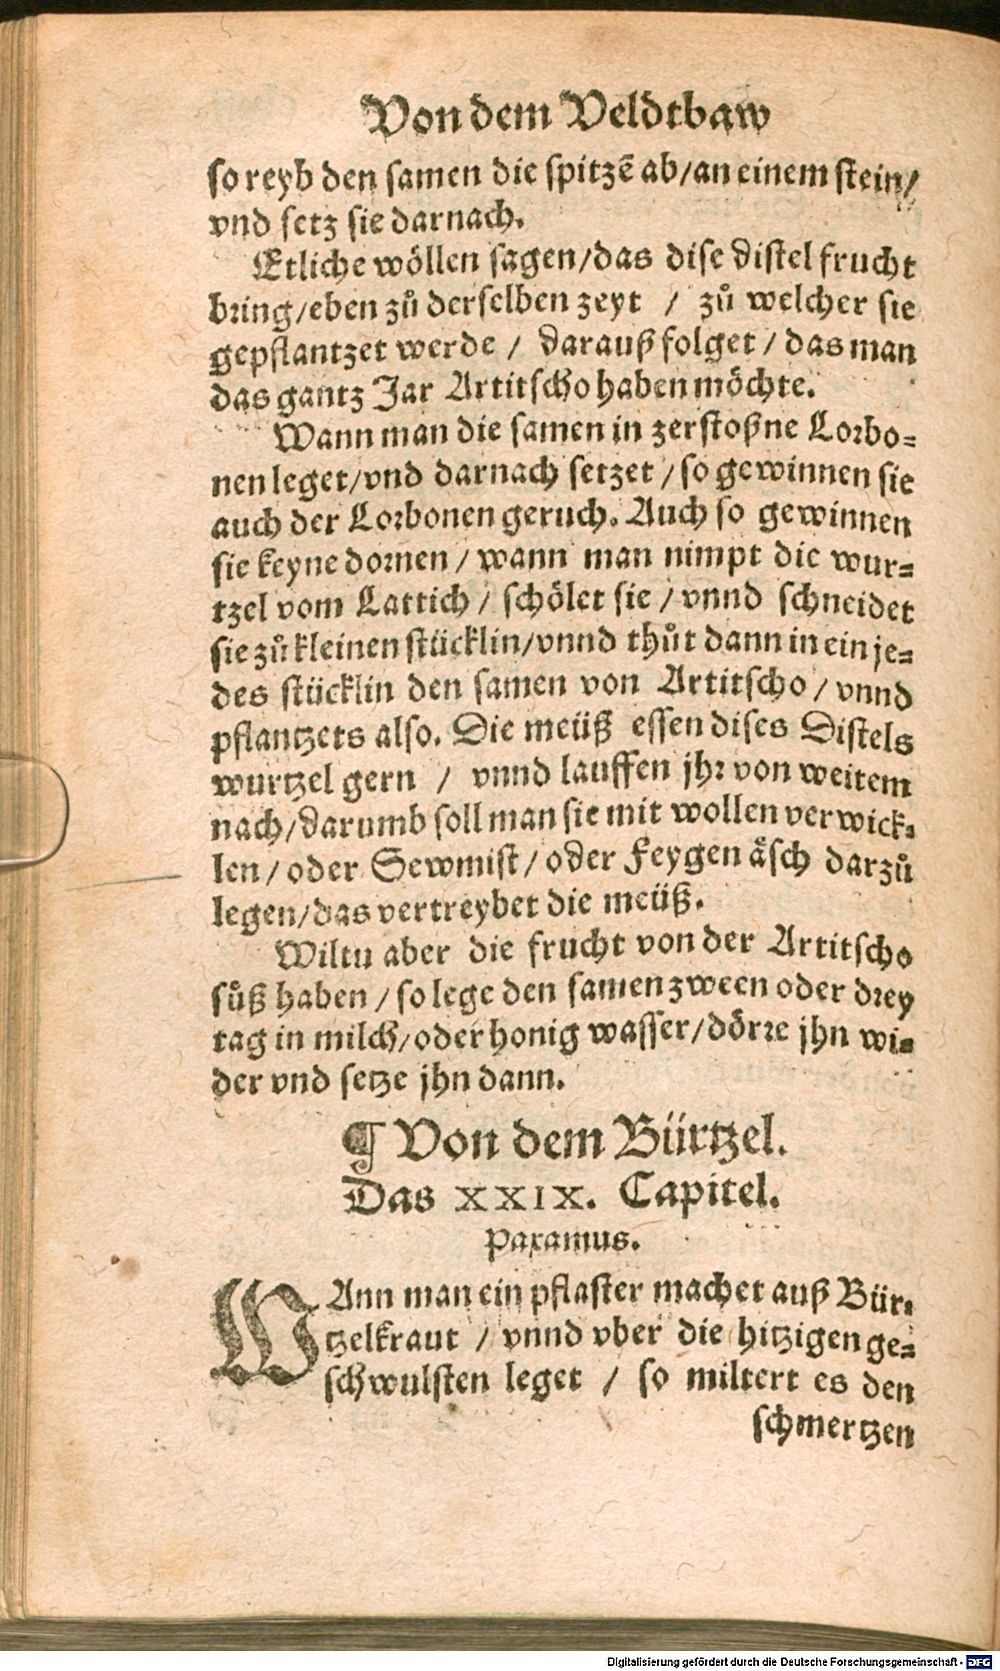 Von dem Veldtbaw
so reyb den samen die spitzẽ ab/an einem stein/
vnd setz sie darnach.
Etliche wöllen sagen/das dise distel frucht
bring/eben zů derselben zeyt / zů welcher sie
gepflantzet werde / darauß folget / das man
das gantz Jar Artitscho haben möchte.
Wann man die samen in zerstoßne Lorbo=
nen leget/vnd darnach setzet / so gewinnen sie
auch der Lorbonen geruch. Auch so gewinnen
sie keyne dornen / wann man nimpt die wur=
tzel vom Lattich / schölet sie / vnnd schneidet
sie zů kleinen stücklin/vnnd thůt dann in ein je=
des stücklin den samen von Artitscho / vnnd
pflantzets also. Die meüß essen dises Distels
wurtzel gern / vnnd lauffen jhr von weitem
nach/darumb soll man sie mit wollen verwick=
len / oder Sewmist / oder Feygen äsch darzů
legen/das vertreybet die meüß.
Wiltu aber die frucht von der Artitscho
sůß haben / so lege den samen zween oder drey
tag in milch/oder honig wasser/dörre jhn wi=
der vnd setze jhn dann.
¶ Von dem Bürtzel.
Das XXIX. Capitel.
Paxamus.
WAnn man ein pflaster machet auß Bür=
tzelkraut / vnnd vber die hitzigen ge=
schwulsten leget / so miltert es den
schmertzen
Digitalisierung gefördert durch die Deutsche Forschungsgemeinschaft - DFG